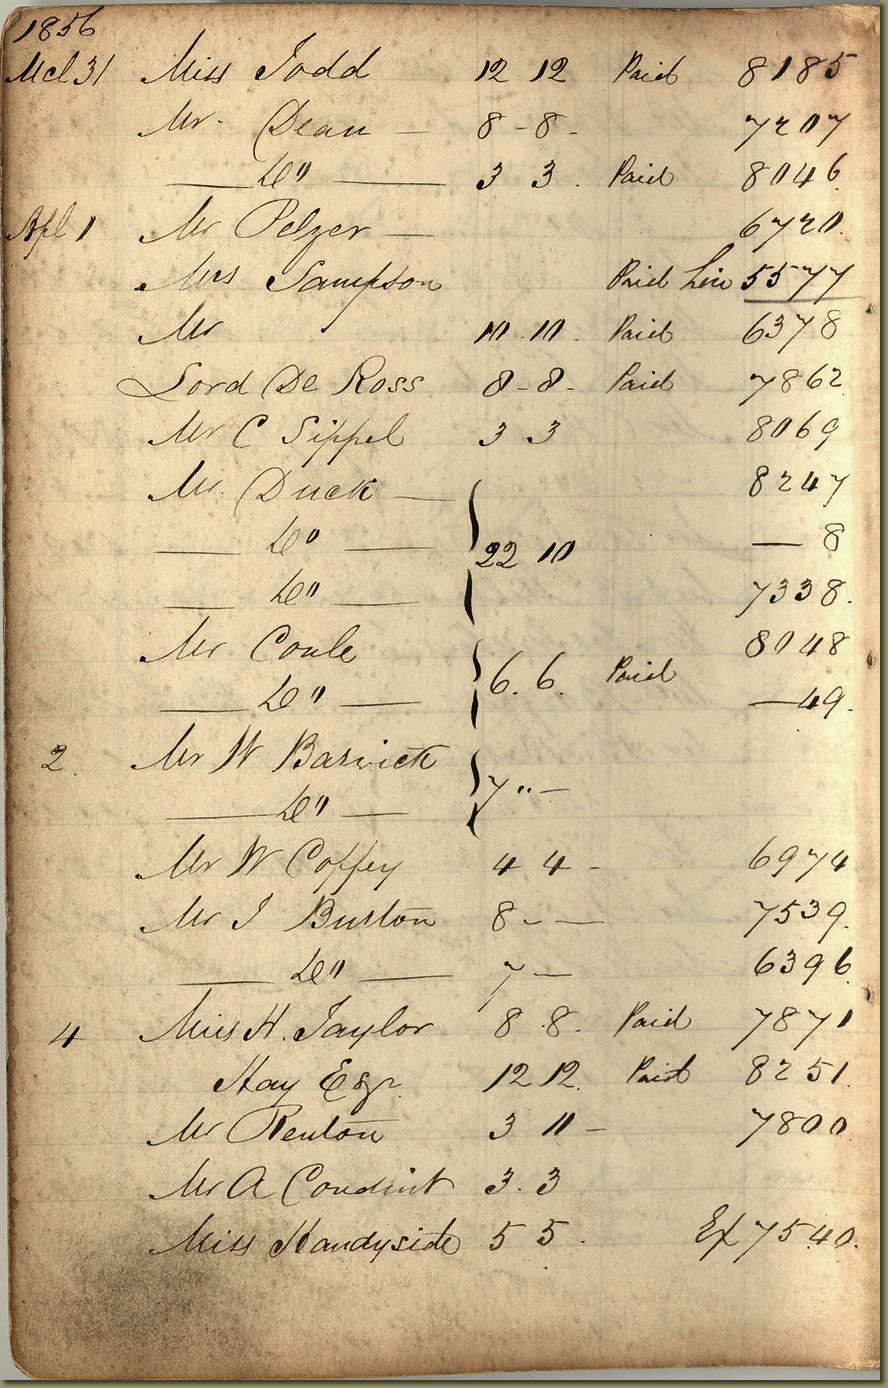 1856
Mch 31 Miss Todd 12 12 Paid 8185
Mr. Dean — 8 - 8 - 7207
— Do " — 3 3 . Paid 8046
Apl 1 Mr Pelzer — 6720
Mrs Sampson Paid 5577
Mr 10 . 10 . Paid 6378
Lord De Ross 8 - 8 - Paid 7862
Mr C Sippel 3 3 8069
Mr. Duck — 8247
— Do " — 22 10 — 8
— Do " — 7338.
Mr Coule 8048
— Do " — 6. 6. Paid — 49.
2 Mr W Barwick
— Do " — 7 " —
Mr W Coffey 4 4 - 6974
Mr J Burton 8 - — 7539.
— Do " — 7 — 6396
4 Miss H. Taylor 8 . 8. Paid 7871
Hay Esqr 12 12. Paid 8251.
Mr Renton 3 11 - 7800
Mr A Conduit 3. 3
Miss Handyside 5 5 . Ex 7540.